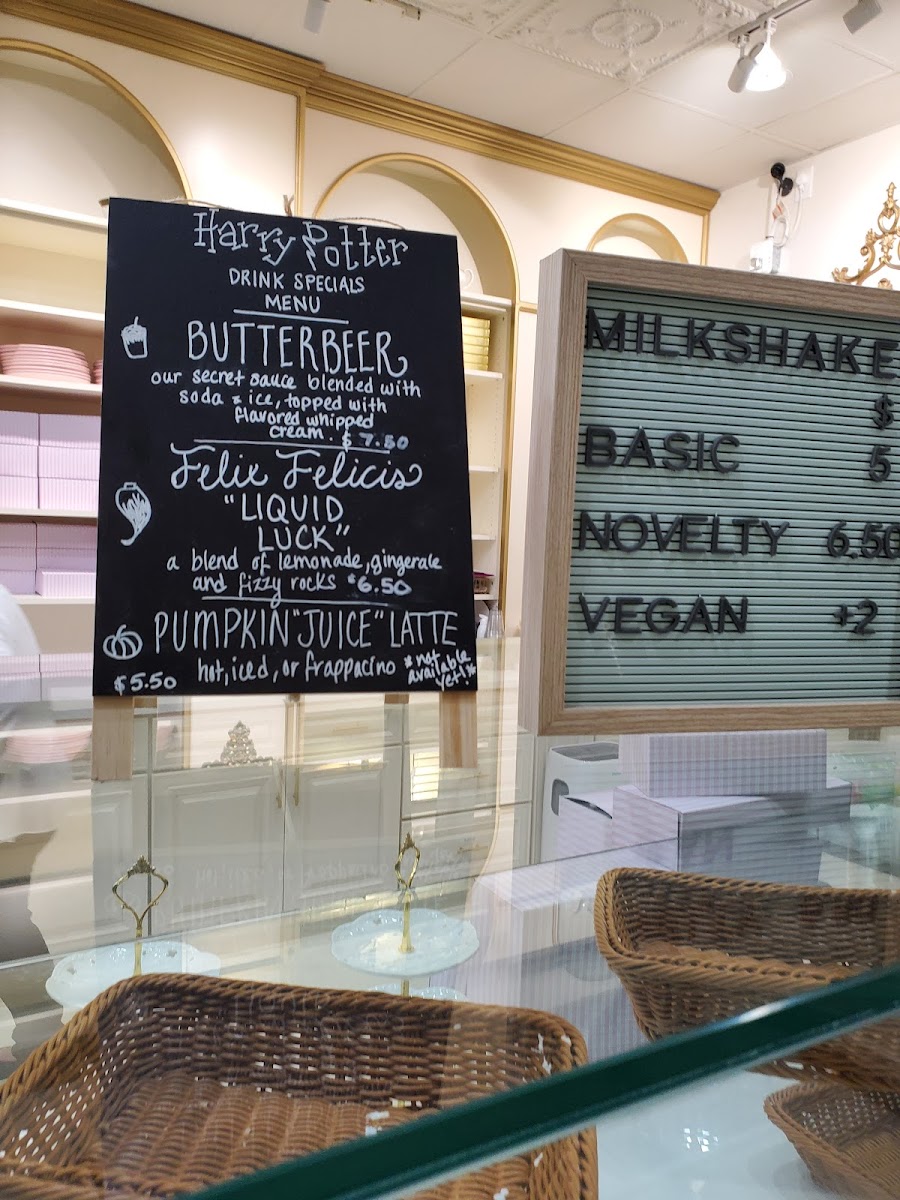 Harry Potter
DRINK SPECIALS
MENU
BUTTERBEER
our secret sauce blended with
soda & ice, topped with
flavored whipped
cream. $7.50
Felix Felicis
"LIQUID
LUCK"
a blend of lemonade, gingerale
and fizzy rocks $6.50
PUMPKIN "JUICE" LATTE
hot, iced, or frappacino *not
available
yet!*
$5.50
MILKSHAKE
$
BASIC 5
NOVELTY 6.50
VEGAN +2